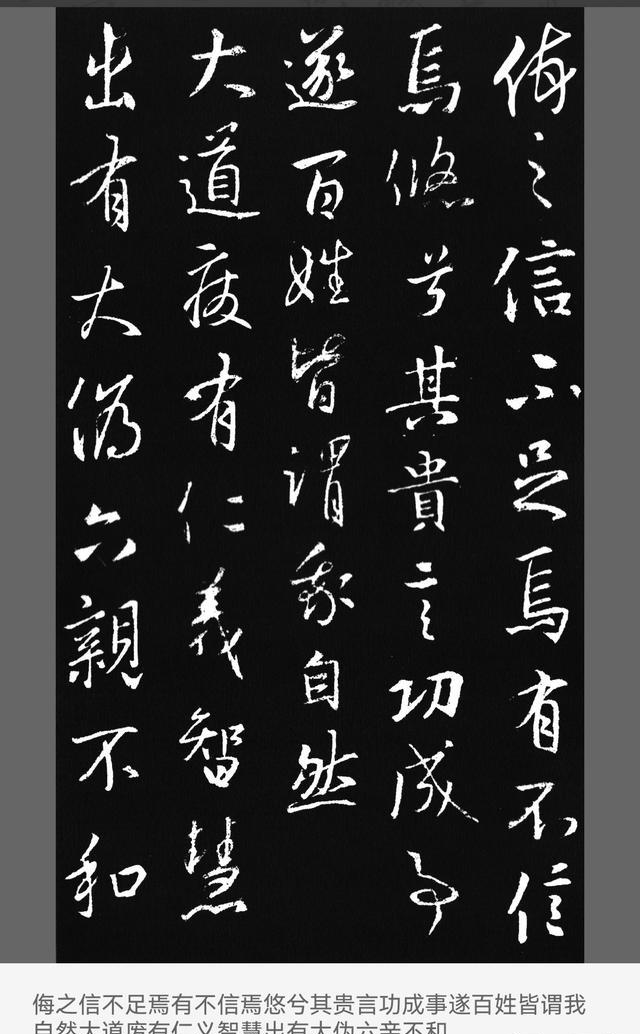 侮之信不足焉有不信
焉悠兮其貴言功成事
遂百姓皆謂我自然
大道廢有仁義智慧
出有大偽六親不和
侮之信不足焉有不信焉悠兮其贵言功成事遂百姓皆谓我
自然大道废有仁义智慧出有大伪六亲不和